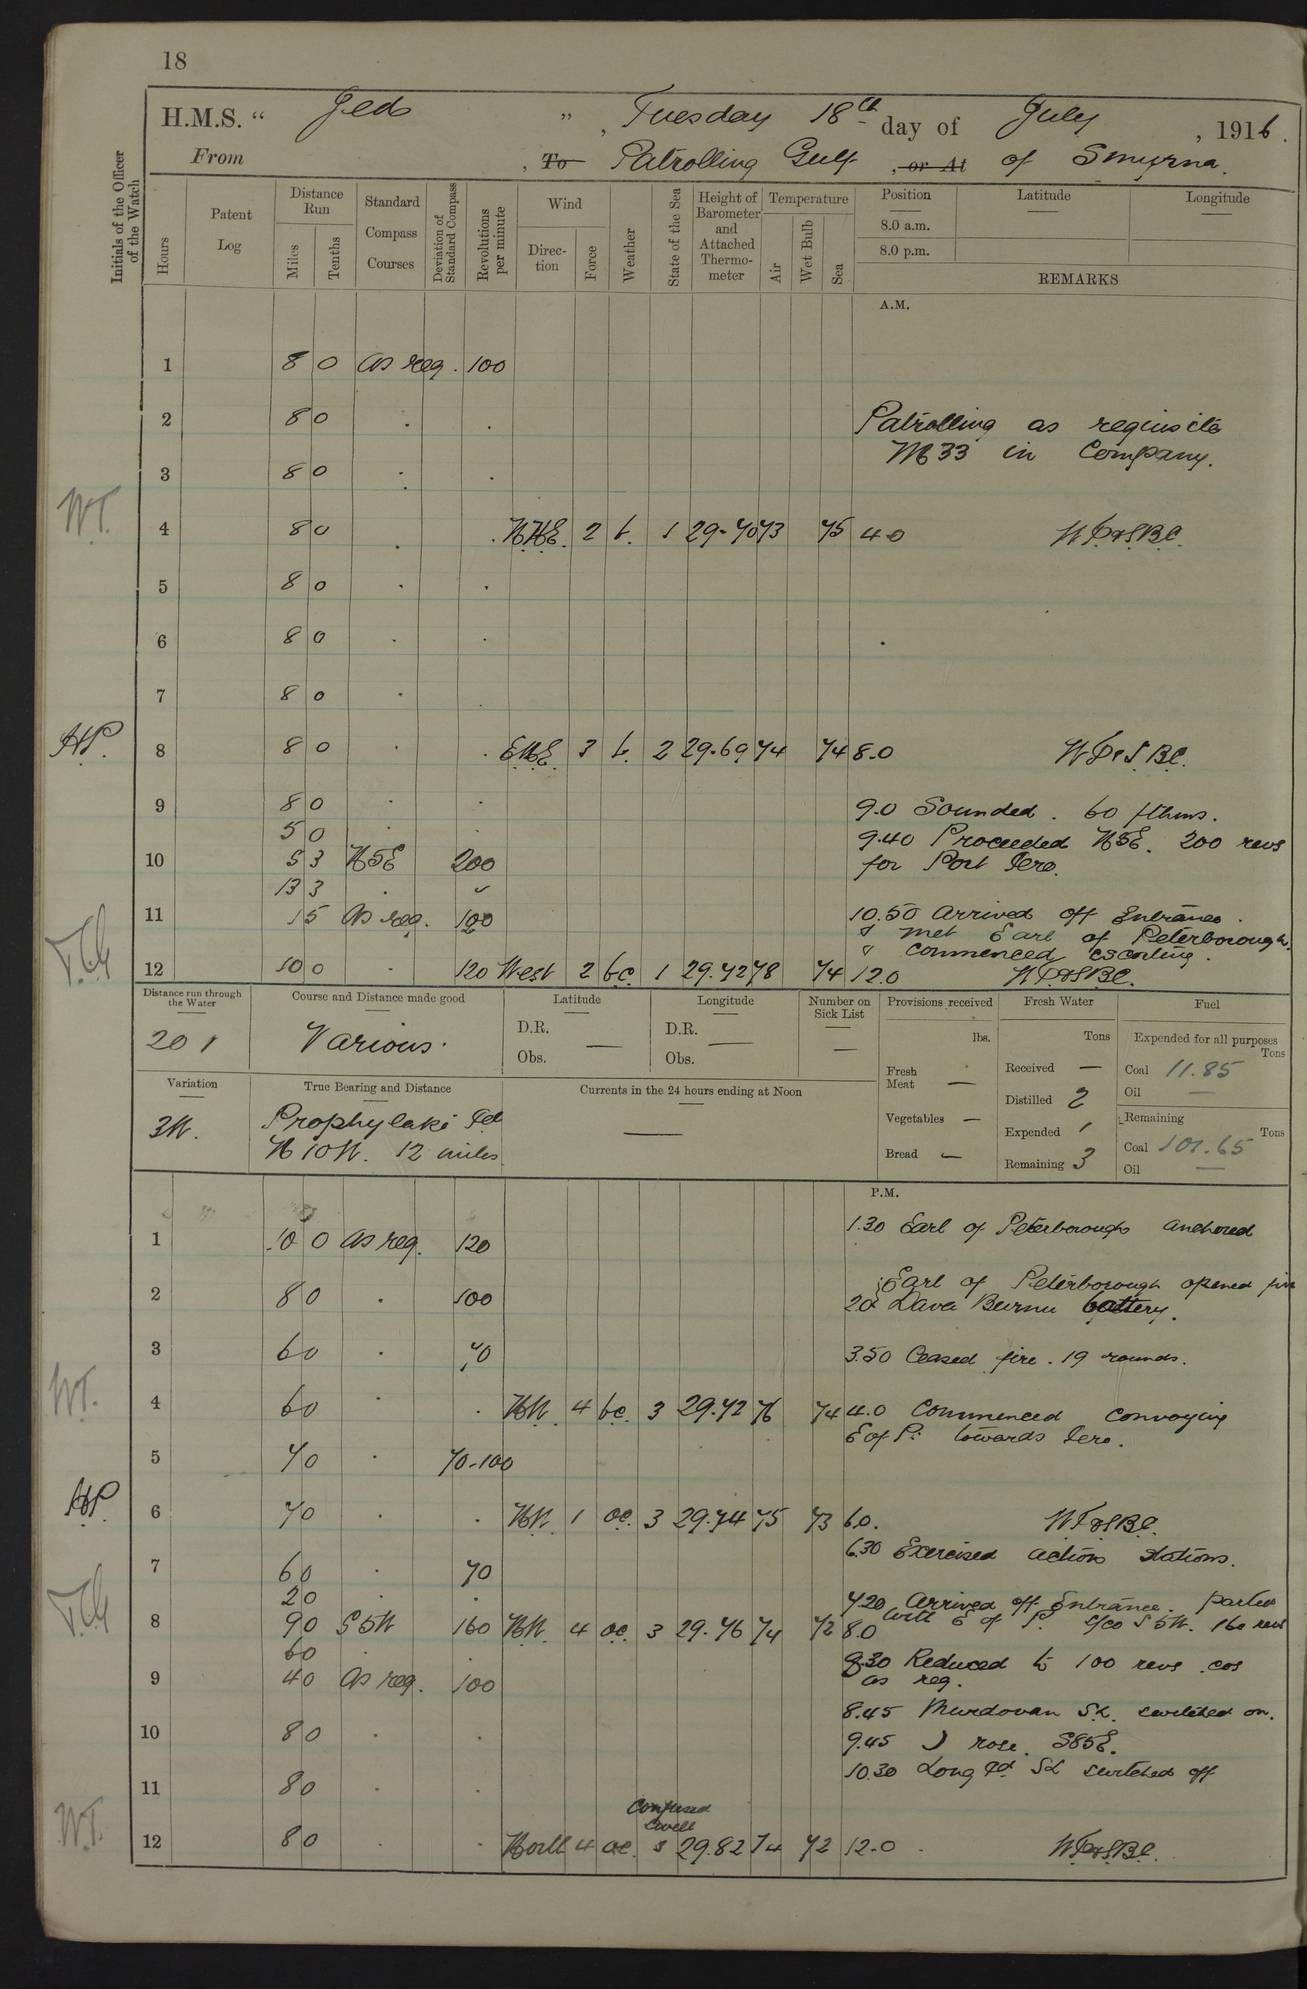 18
H.M.S. " Jed " , Tuesday 18th day of July , 1916.
From , To Patrolling Gulf , or At of Smyrna.
Initials of the Officer of the Watch
Hours
Patent Log
Distance Run
Miles
Tenths
Standard Compass Courses
Deviation of Standard Compass
Revolutions per minute
Wind
Direction
Force
Weather
State of the Sea
Height of Barometer and Attached Thermometer
Temperature
Air
Wet Bulb
Sea
Position
8.0 a.m.
8.0 p.m.
Latitude
Longitude
REMARKS
A.M.
1 8 0 as req. 100
2 8 0 . . Patrolling as requisite
M33 in Company.
3 8 0 . .
W.T. 4 8 0 . . NNE. 2 b. 1 29.70 73 75 4.0
5 8 0 . .
6 8 0 . .
7 8 0 .
HP. 8 8 0 . . ENE. 3 b. 2 29.69 74 74 8.0
9 8 0 . . 9.0 Sounded. 60 fthms.
5 0 . . 9.40 Proceeded N5E. 200 revs
10 5 3 N5E 200 for Port Iero.
13 3 .
11 1 5 as req. 100 10.50 Arrived off Entrance.
& met Earl of Peterborough.
& commenced escorting.
12 10 0 . 120 West 2 bc. 1 29.72 78 74 12.0
Distance run through the Water
Course and Distance made good
Latitude
Longitude
Number on Sick List
Provisions received
Fresh Water
Fuel
20 1
Various.
D.R.
Obs. —
D.R.
Obs. —
—
lbs.
Tons
Expended for all purposes
Tons
Fresh Meat —
Received —
Coal 11.85
Oil —
Variation
True Bearing and Distance
Currents in the 24 hours ending at Noon
Distilled 2
Remaining
Tons
3W.
Prophylaki Pt
N10W. 12 miles
—
Vegetables —
Expended 1
Coal 101.65
Bread —
Remaining 3
Oil —
P.M.
1.30 Earl of Peterborough anchored
1 10 0 as req. 120
Earl of Peterborough opened fire
2 8 0 . 100 2.0 Lava Burnu battery.
3 6 0 . 70 3.50 Ceased fire. 19 rounds.
W.T. 4 6 0 . . NW. 4 bc. 3 29.72 76 74 4.0 Commenced convoying
E of P. towards Iero.
5 7 0 . 70-100
HP. 6 7 0 . . NW. 1 oc. 3 29.74 75 73 6.0.
6.30 Exercised action stations.
7 6 0 . 70
2 0 . . 7.20 Arrived off Entrance. parted
8 9 0 S5W 160 NW. 4 oc. 3 29.76 74 72 8.0 with E of P. S/co S5W. 160 revs
6 0 . . 8.30 Reduced to 100 revs. cos
9 4 0 as req. 100 as req.
8.45 Murdovan S.L. switched on.
10 8 0 . . 9.45 ☽ rose. S85E.
10.30 Long Id SL switched off
11 8 0 .
Confused
Swell
W.T. 12 8 0 . . North 4 oc. 3 29.82 74 72 12.0